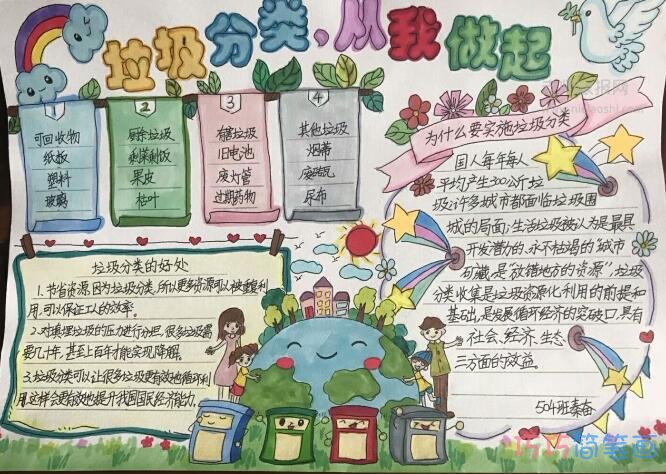 垃圾分类,从我做起
1
可回收物
纸板
塑料
玻璃
2
厨余垃圾
剩菜剩饭
果皮
枯叶
3
有害垃圾
旧电池
废灯管
过期药物
4
其他垃圾
烟蒂
尿布
为什么要实施垃圾分类
国人每年每人
平均产生300公斤垃
圾,许多城市都面临垃圾围
城的局面;生活垃圾被认为是最具
开发潜力的、永不枯竭的“城市
矿藏”是“放错地方的资源”,垃圾
分类收集是垃圾资源化利用的前提和
基础,是发展循环经济的突破口,具有
社会、经济、生态
三方面的效益。
504班秦奋
垃圾分类的好处
1.节省资源,因为垃圾分类,所以更多资源可以被重复利
用,可以保证工人的效率。
2.对填埋垃圾的压力进行分担,很多垃圾需
要几十年,甚至上百年才能实现降解。
3.垃圾分类可以让很多垃圾更有效地循环利
用,这样会更有效地提升我国国民经济能力。
巧巧简笔画